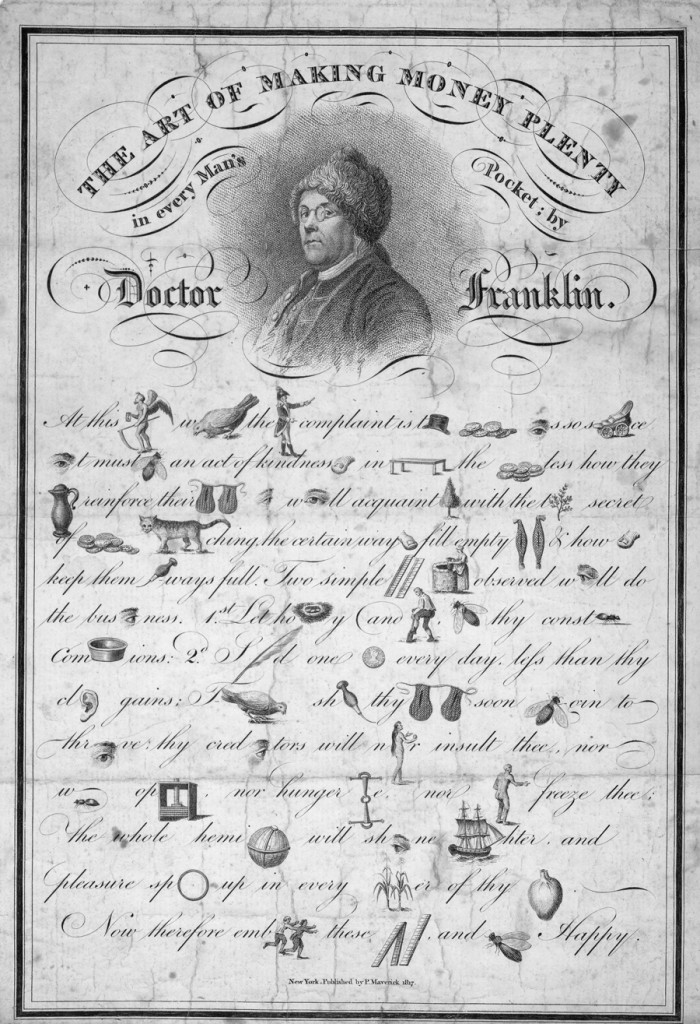 THE ART OF MAKING MONEY PLENTY
in every Man's Pocket; by
Doctor Franklin.
At this w the complaint is t s so s ce
t must an act of kindness in the less how they
reinforce their w ll acquaint with the t secret
of ching, the certain way fill empty & how
keep them ways full. Two simple observed w ll do
the bus ness. 1.st Let ho y and , thy const
Com ions: 2.d S d one every day, less than thy
cl gains: T sh thy soon gin to
thr ve; thy cred tors will n r insult thee, nor
w op , nor hunger e, nor freeze thee:
The whole hemi will sh ne hter, and
pleasure sp up in every er of thy .
Now therefore emb these , and Happy.
New York, Published by P. Maverick, 1817.